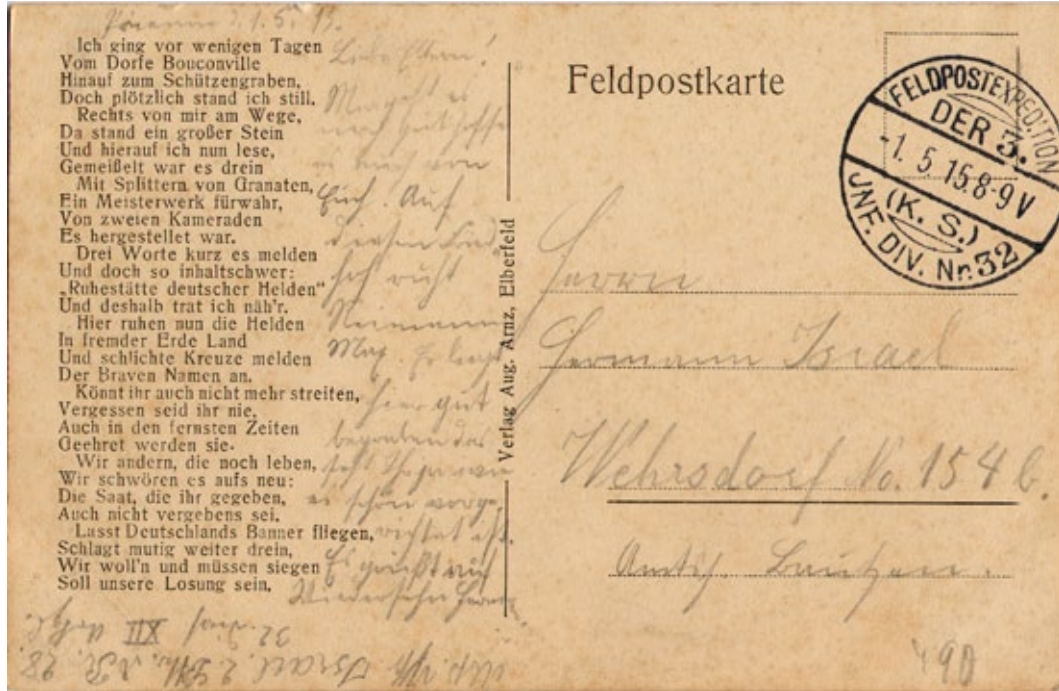 Ich ging vor wenigen Tagen
Vom Dorfe Bouconville
Hinauf zum Schützengraben,
Doch plötzlich stand ich still.
Rechts von mir am Wege,
Da stand ein großer Stein
Und hierauf ich nun lese,
Gemeißelt war es drein
Mit Splittern von Granaten,
Ein Meisterwerk fürwahr,
Von zweien Kameraden
Es hergestellet war.
Drei Worte kurz es melden
Und doch so inhaltschwer:
„Ruhestätte deutscher Helden“
Und deshalb trat ich näh'r.
Hier ruhen nun die Helden
In fremder Erde Land
Und schlichte Kreuze melden
Der Braven Namen an.
Könnt ihr auch nicht mehr streiten,
Vergessen seid ihr nie,
Auch in den fernsten Zeiten
Geehret werden sie.
Wir andern, die noch leben,
Wir schwören es aufs neu:
Die Saat, die ihr gegeben,
Auch nicht vergebens sei.
Lasst Deutschlands Banner fliegen,
Schlagt mutig weiter drein,
Wir woll'n und müssen siegen
Soll unsere Losung sein.
Liebe Eltern!
Mir geht es
noch gut hoffe
es auch von
Euch. Auf
diesen Fried
hof ruht
Neimann
Max. Er liegt
hier gut
begraben
wie
es schön vorge
richtet ist.
Es grüßt auf
Wiedersehn
Verlag Aug. Arnz, Elberfeld
Feldpostkarte
FELDPOSTEXPEDITION
DER 3.
-1. 5 15. 8-9 V
(K. S.)
INF. DIV. Nr. 32
Herrn
Hermann Israel
Wehrsdorf No. 154 b.
Amtsh. Bautzen.
490
Israel
XII